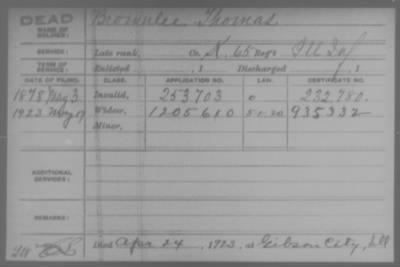 DEAD
NAME OF SOLDIER:
Brownlee Thomas
SERVICE:
Late rank, Co. K, 65 Reg't Ill Inf
TERM OF SERVICE:
Enlisted , 1 Discharged , 1
DATE OF FILING. CLASS. APPLICATION NO. LAW. CERTIFICATE NO.
1878 May 3 Invalid, 253.703 0 232.780.
1923 May 17 Widow, 1205610 5-1-20 935332
Minor,
ADDITIONAL SERVICES:
REMARKS:
Died Apr 24, 1923, at Gibson City, Ill